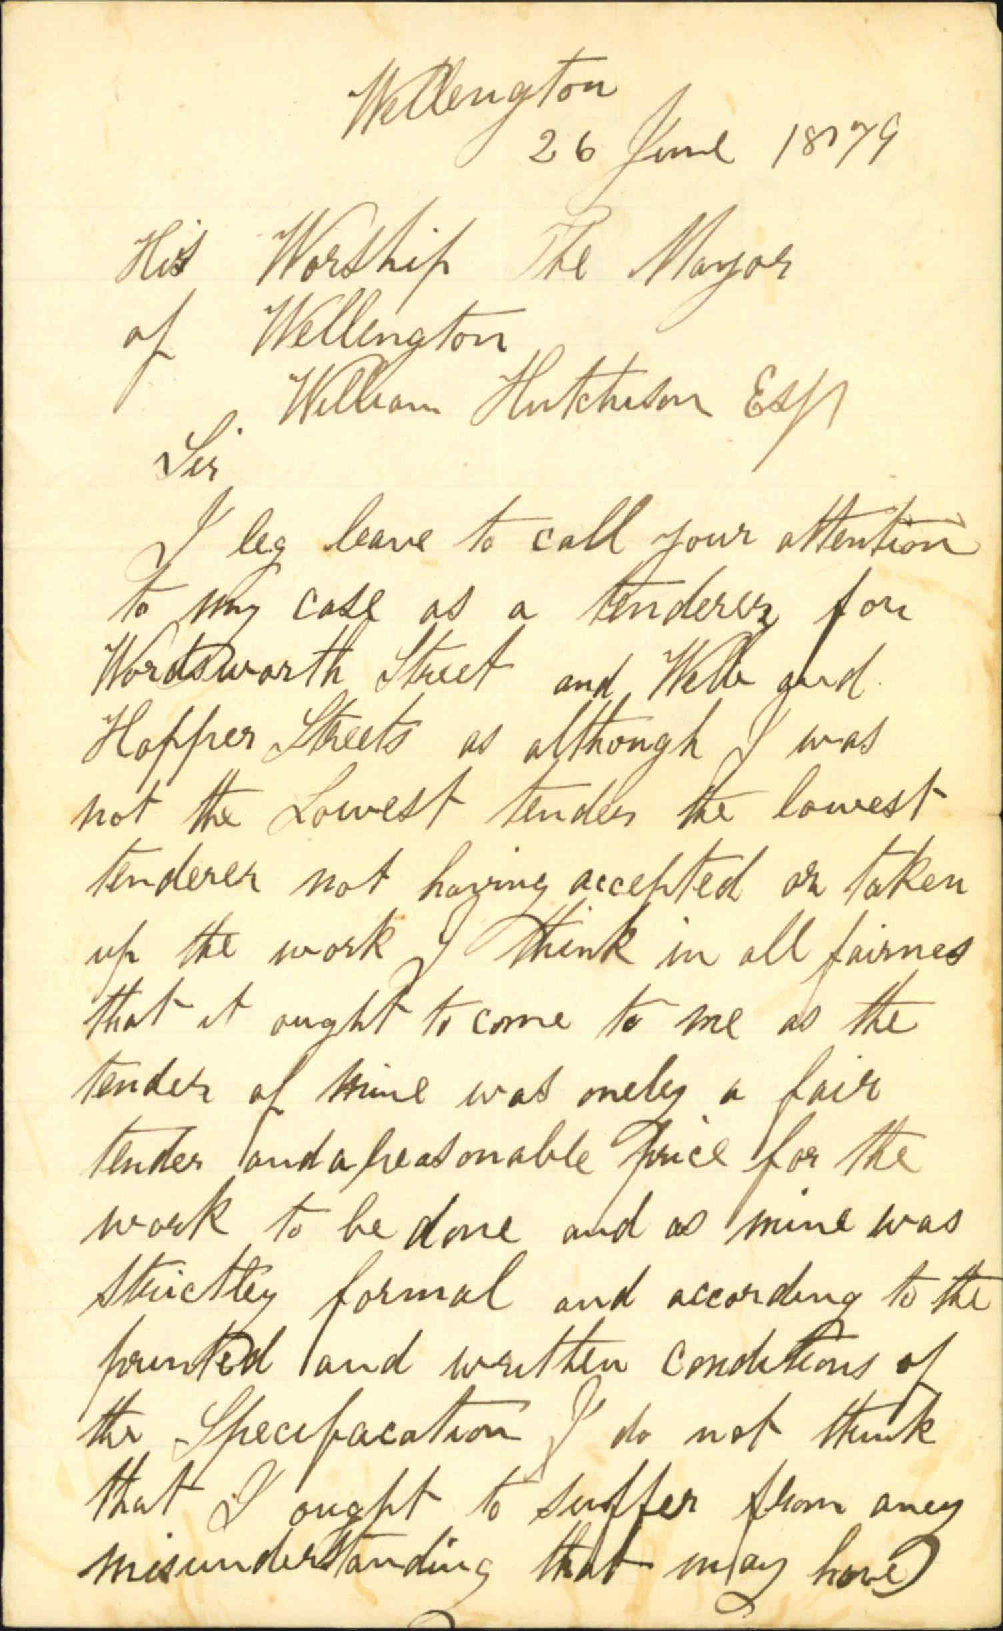 Wellengton
26 June 1879
His Worship The Mayor
of Wellington
William Hutchison Esq
Sir
I beg leave to call your attention
to my case as a tenderer for
Wordsworth Street and Webb and
Hopper Streets as although I was
not the Lowest tender the lowest
tenderer not having accepted or taken
up the work I think in all fairnes
that it ought to come to me as the
tender of mine was oneley a fair
tender and a reasonable price for the
work to be done and as mine was
strictley formal and according to the
printed and written conditions of
the Specifacation I do not think
that I ought to suffer from aney
misunderstanding that may have